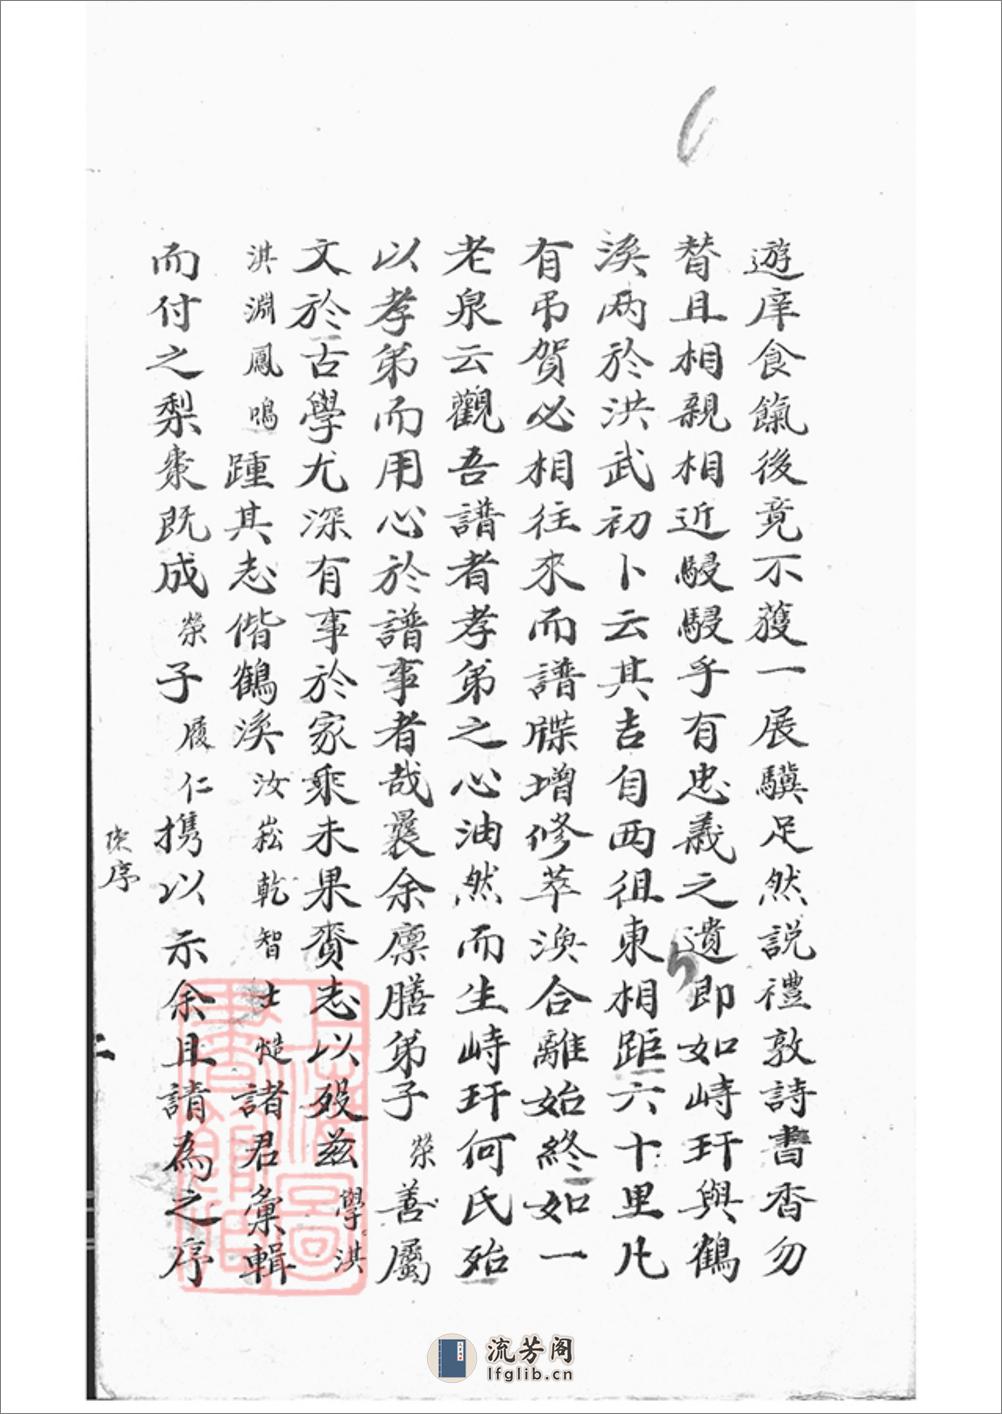 遊庠食餼後竟不蒦一展驥足然説禮敦詩書香勿
替且相親相近駸駸乎有忠義之遺即如峙玕與鶴
溪两於洪武初卜云其吉自西徂東相距六十里凡
有弔賀必相往來而譜牒增修萃渙合離始終如一
老泉云觀吾譜者孝弟之心油然而生峙玕何氏殆
以孝弟而用心於譜事者哉曩余廪膳弟子榮善屬
文於古學尤深有事於家乘未果賫志以殁兹學洪
淇淵鳳鳴踵其志偕鶴溪汝崧乾智士慥諸君彙輯
而付之梨棗既成榮子履仁携以示余且請為之序
序
二
上海圖書館藏
流芳阁
lfglib.cn